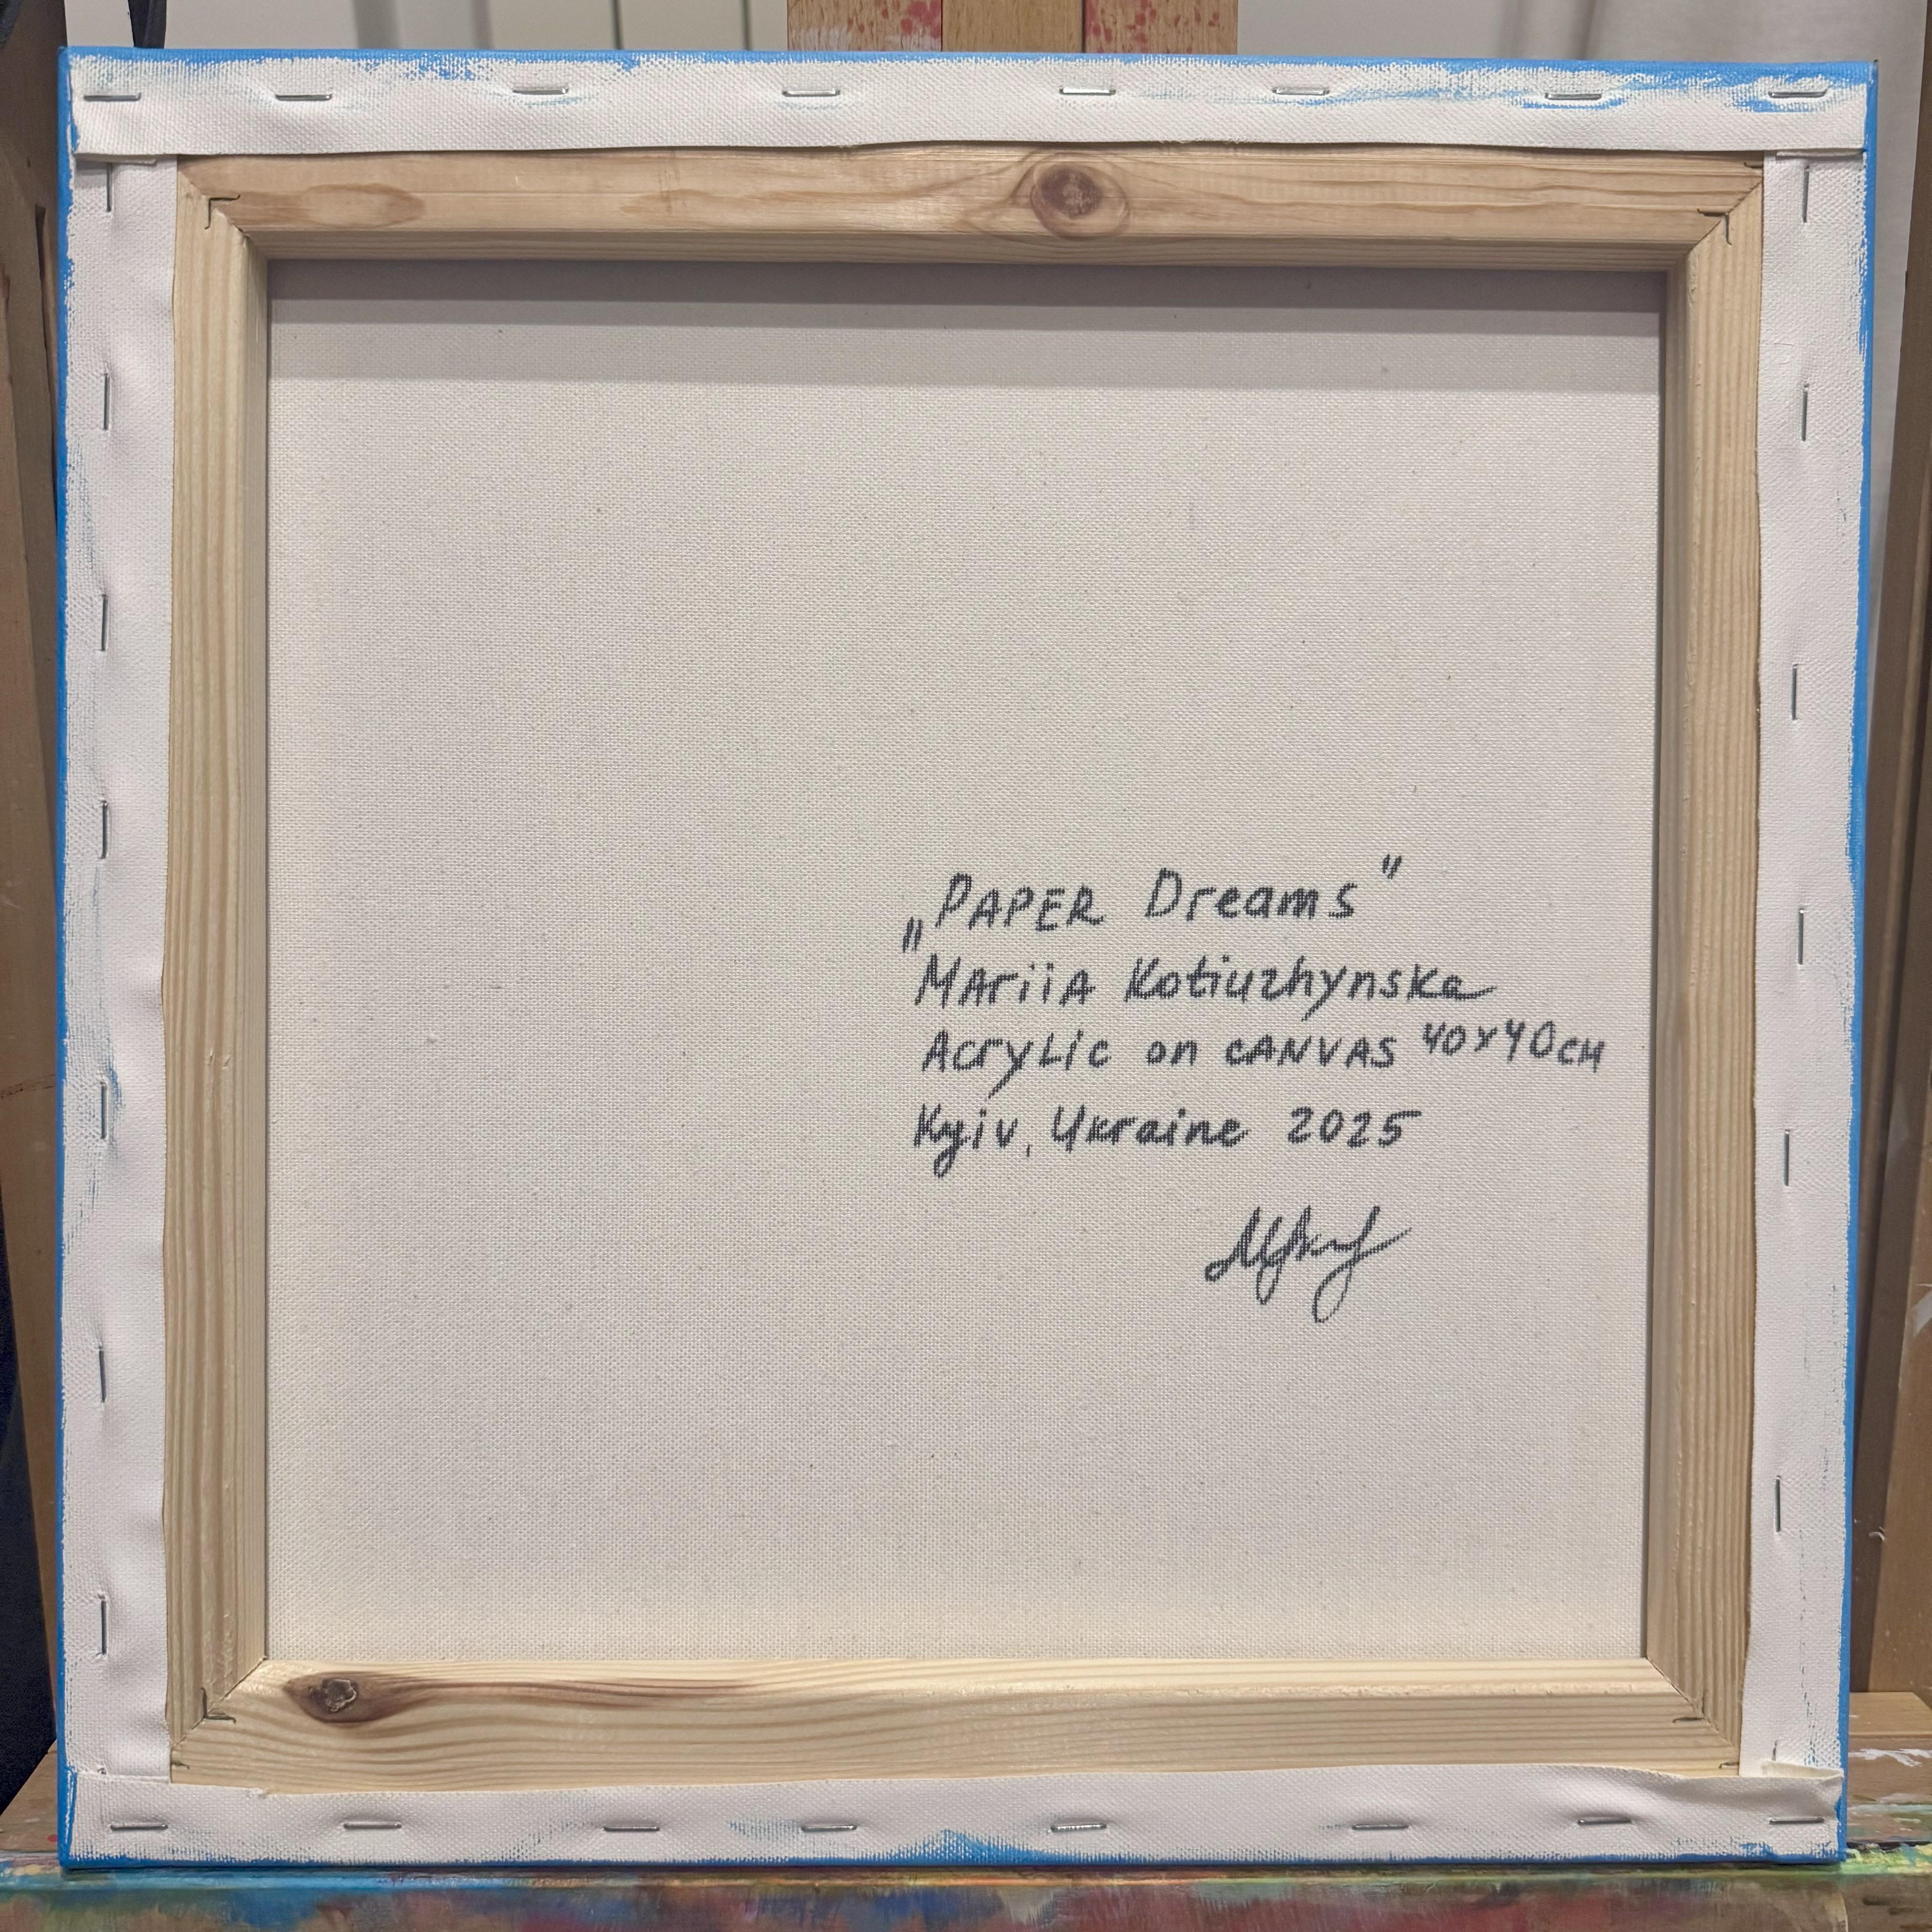 „PAPER Dreams"
Mariia Kotiuzhynska
Acrylic on canvas 40x40cм
Kyiv, Ukraine 2025